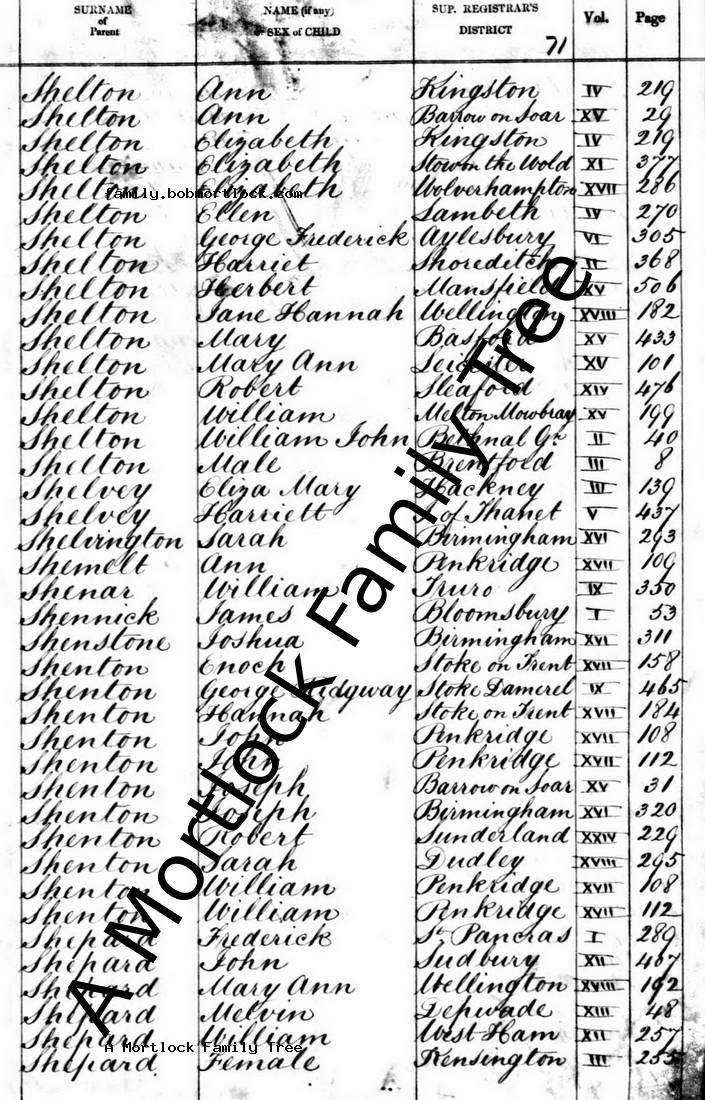 SURNAME of Parent NAME (if any) or SEX of CHILD SUP. REGISTRAR'S DISTRICT Vol. Page
71
Shelton Ann Kingston IV 219
Shelton Ann Barrow on Soar XV 29
Shelton Elizabeth Kingston IV 219
Shelton Elizabeth Stow on the Wold XI 377
Shelton Elizabeth Wolverhampton XVII 286
family.bobmortlock.com
Shelton Ellen Lambeth IV 270
Shelton George Frederick Aylesbury VI 305
Shelton Harriet Shoreditch II 368
Shelton Herbert Mansfield XV 506
Shelton Jane Hannah Wellington XVIII 182
Shelton Mary Basford XV 433
Shelton Mary Ann Leicester XV 101
Shelton Robert Sleaford XIV 476
Shelton William Melton Mowbray XV 199
Shelton William John Bethnal Gr. II 40
Shelton Male Brentford III 8
Shelvey Eliza Mary Hackney III 139
Shelvey Harriett I. of Thanet V 437
Shelvington Sarah Birmingham XVI 293
Shemelt Ann Penkridge XVII 109
Shenar William Truro IX 350
Shennick James Bloomsbury I 53
Shenstone Joshua Birmingham XVI 311
Shenton Enoch Stoke on Trent XVII 158
Shenton George Ridgway Stoke Damerel IX 465
Shenton Hannah Stoke on Trent XVII 184
Shenton John Penkridge XVII 108
Shenton John Penkridge XVII 112
Shenton Joseph Barrow on Soar XV 31
Shenton Joseph Birmingham XVI 320
Shenton Robert Sunderland XXIV 229
Shenton Sarah Dudley XVIII 295
Shenton William Penkridge XVII 108
Shenton William Penkridge XVII 112
Shepard Frederick St. Pancras I 289
Shepard John Sudbury XII 467
Shepard Mary Ann Wellington XVIII 192
Shepard Melvin Depwade XIII 48
Shepard William West Ham XII 257
A Mortlock Family Tree
Shepard Female Kensington III 255
A Mortlock Family Tree